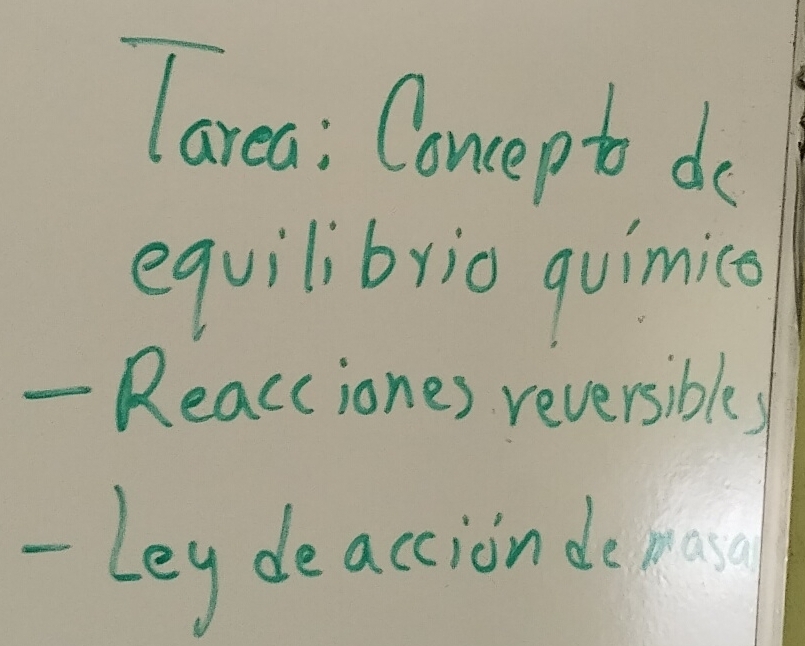 Tarea: Concepto de
equilibrio químico
- Reacciones reversibles
- Ley de acción de masa